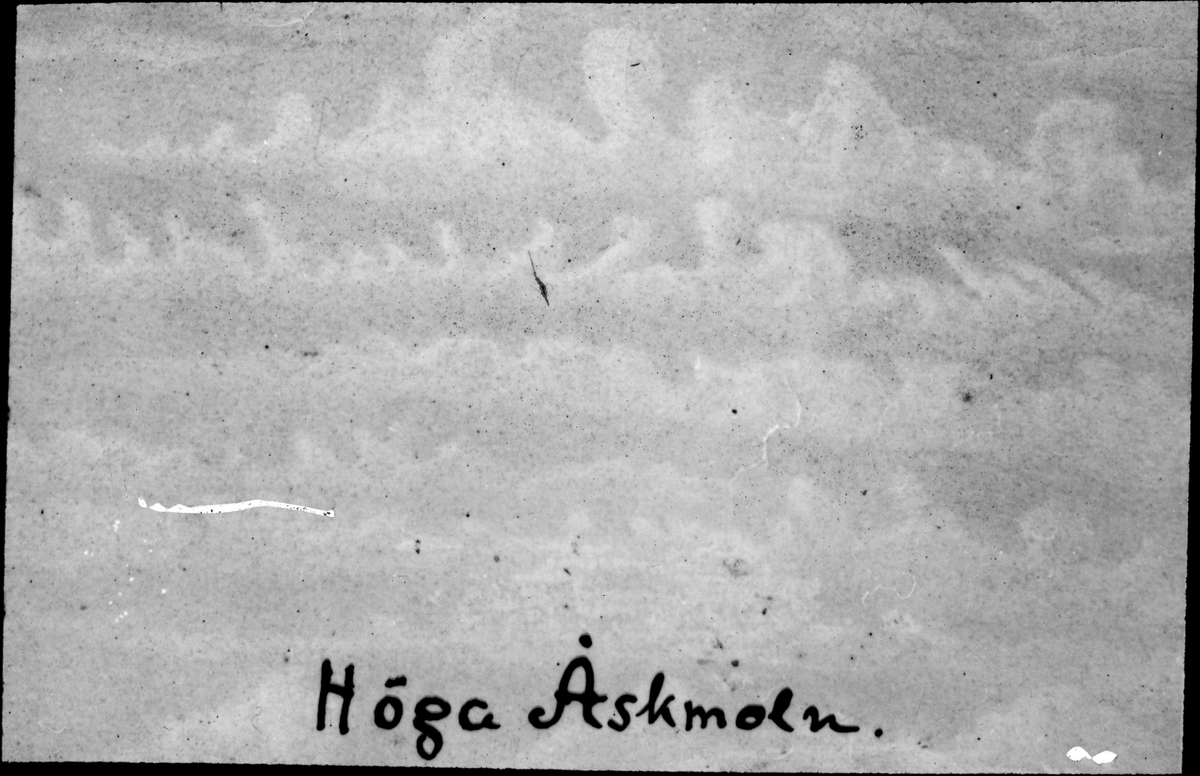 Höga Åskmoln.